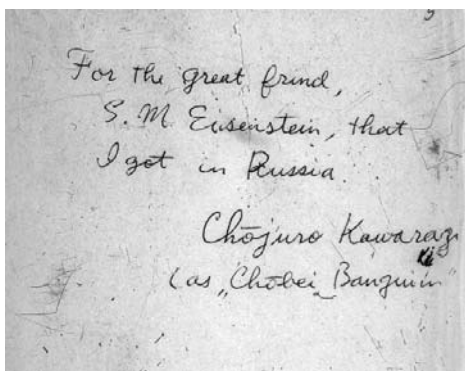 For the great frind,
S. M Eisenstein, that
I got in Russia.
Chōjuro Kawarazaki
(as „Chōbei Banzuiin"